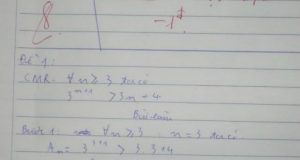 8
-1đ
Đề 1:
CMR ∀n ≥ 3 ta có
3ⁿ⁺¹ > 3n + 4
Bài làm
Bước 1: ∀n ≥ 3 n = 3 ta có
Aₙ = 3³⁺¹ > 3.3+4